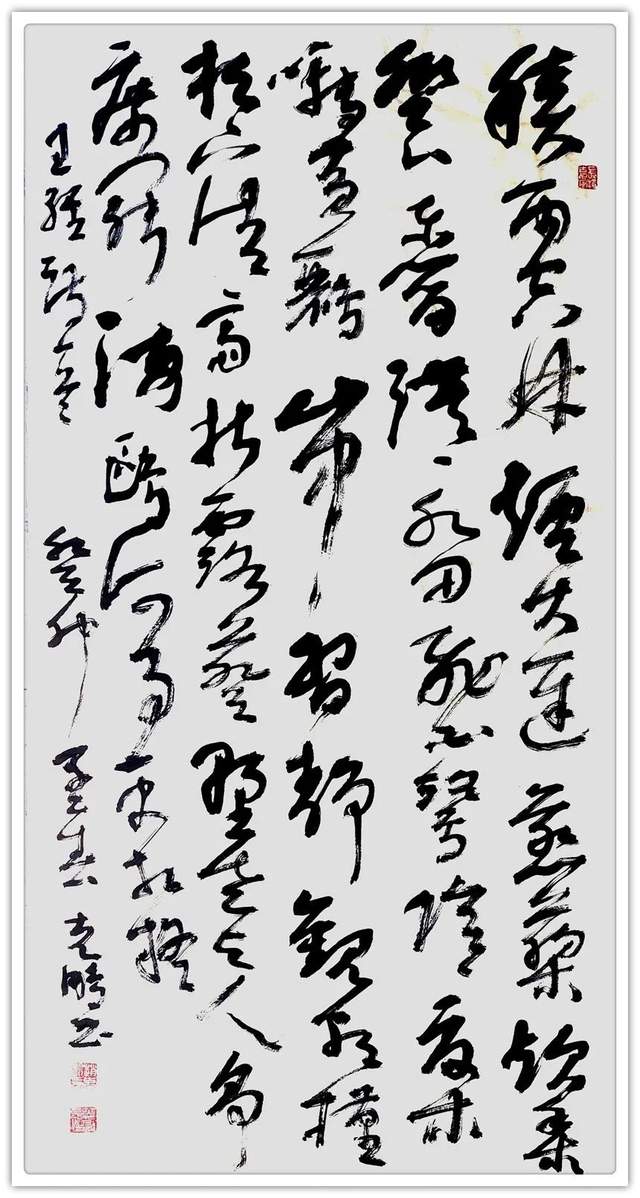 積雨空林煙火遲蒸藜炊黍
餉東菑漠漠水田飛白鷺陰陰夏木
囀黃鸝山中習靜觀朝槿
松下清齋折露葵野老與人爭
席罷海鷗何事更相疑
王維詩 癸卯孟春克鵬書